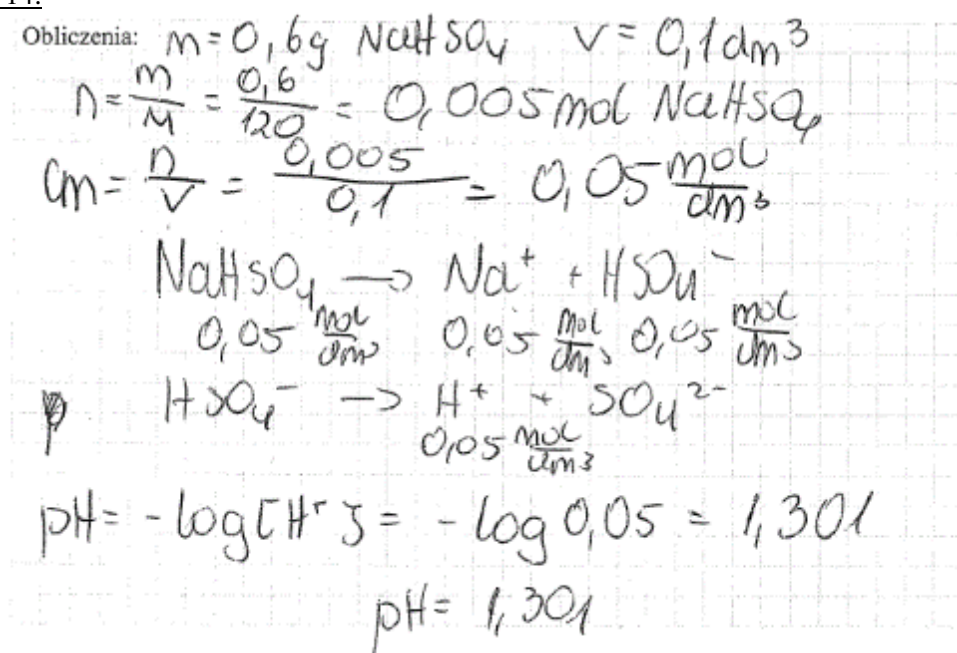 14.
Obliczenia: m = 0,6g NaHSO₄ V = 0,1 dm³
n = m/M = 0,6/120 = 0,005 mol NaHSO₄
Cm = n/V = 0,005/0,1 = 0,05 mol/dm³
NaHSO₄ → Na⁺ + HSO₄⁻
0,05 mol/dm³ 0,05 mol/dm³ 0,05 mol/dm³
HSO₄⁻ → H⁺ + SO₄²⁻
0,05 mol/dm³
pH = -log[H⁺] = -log 0,05 = 1,301
pH = 1,301